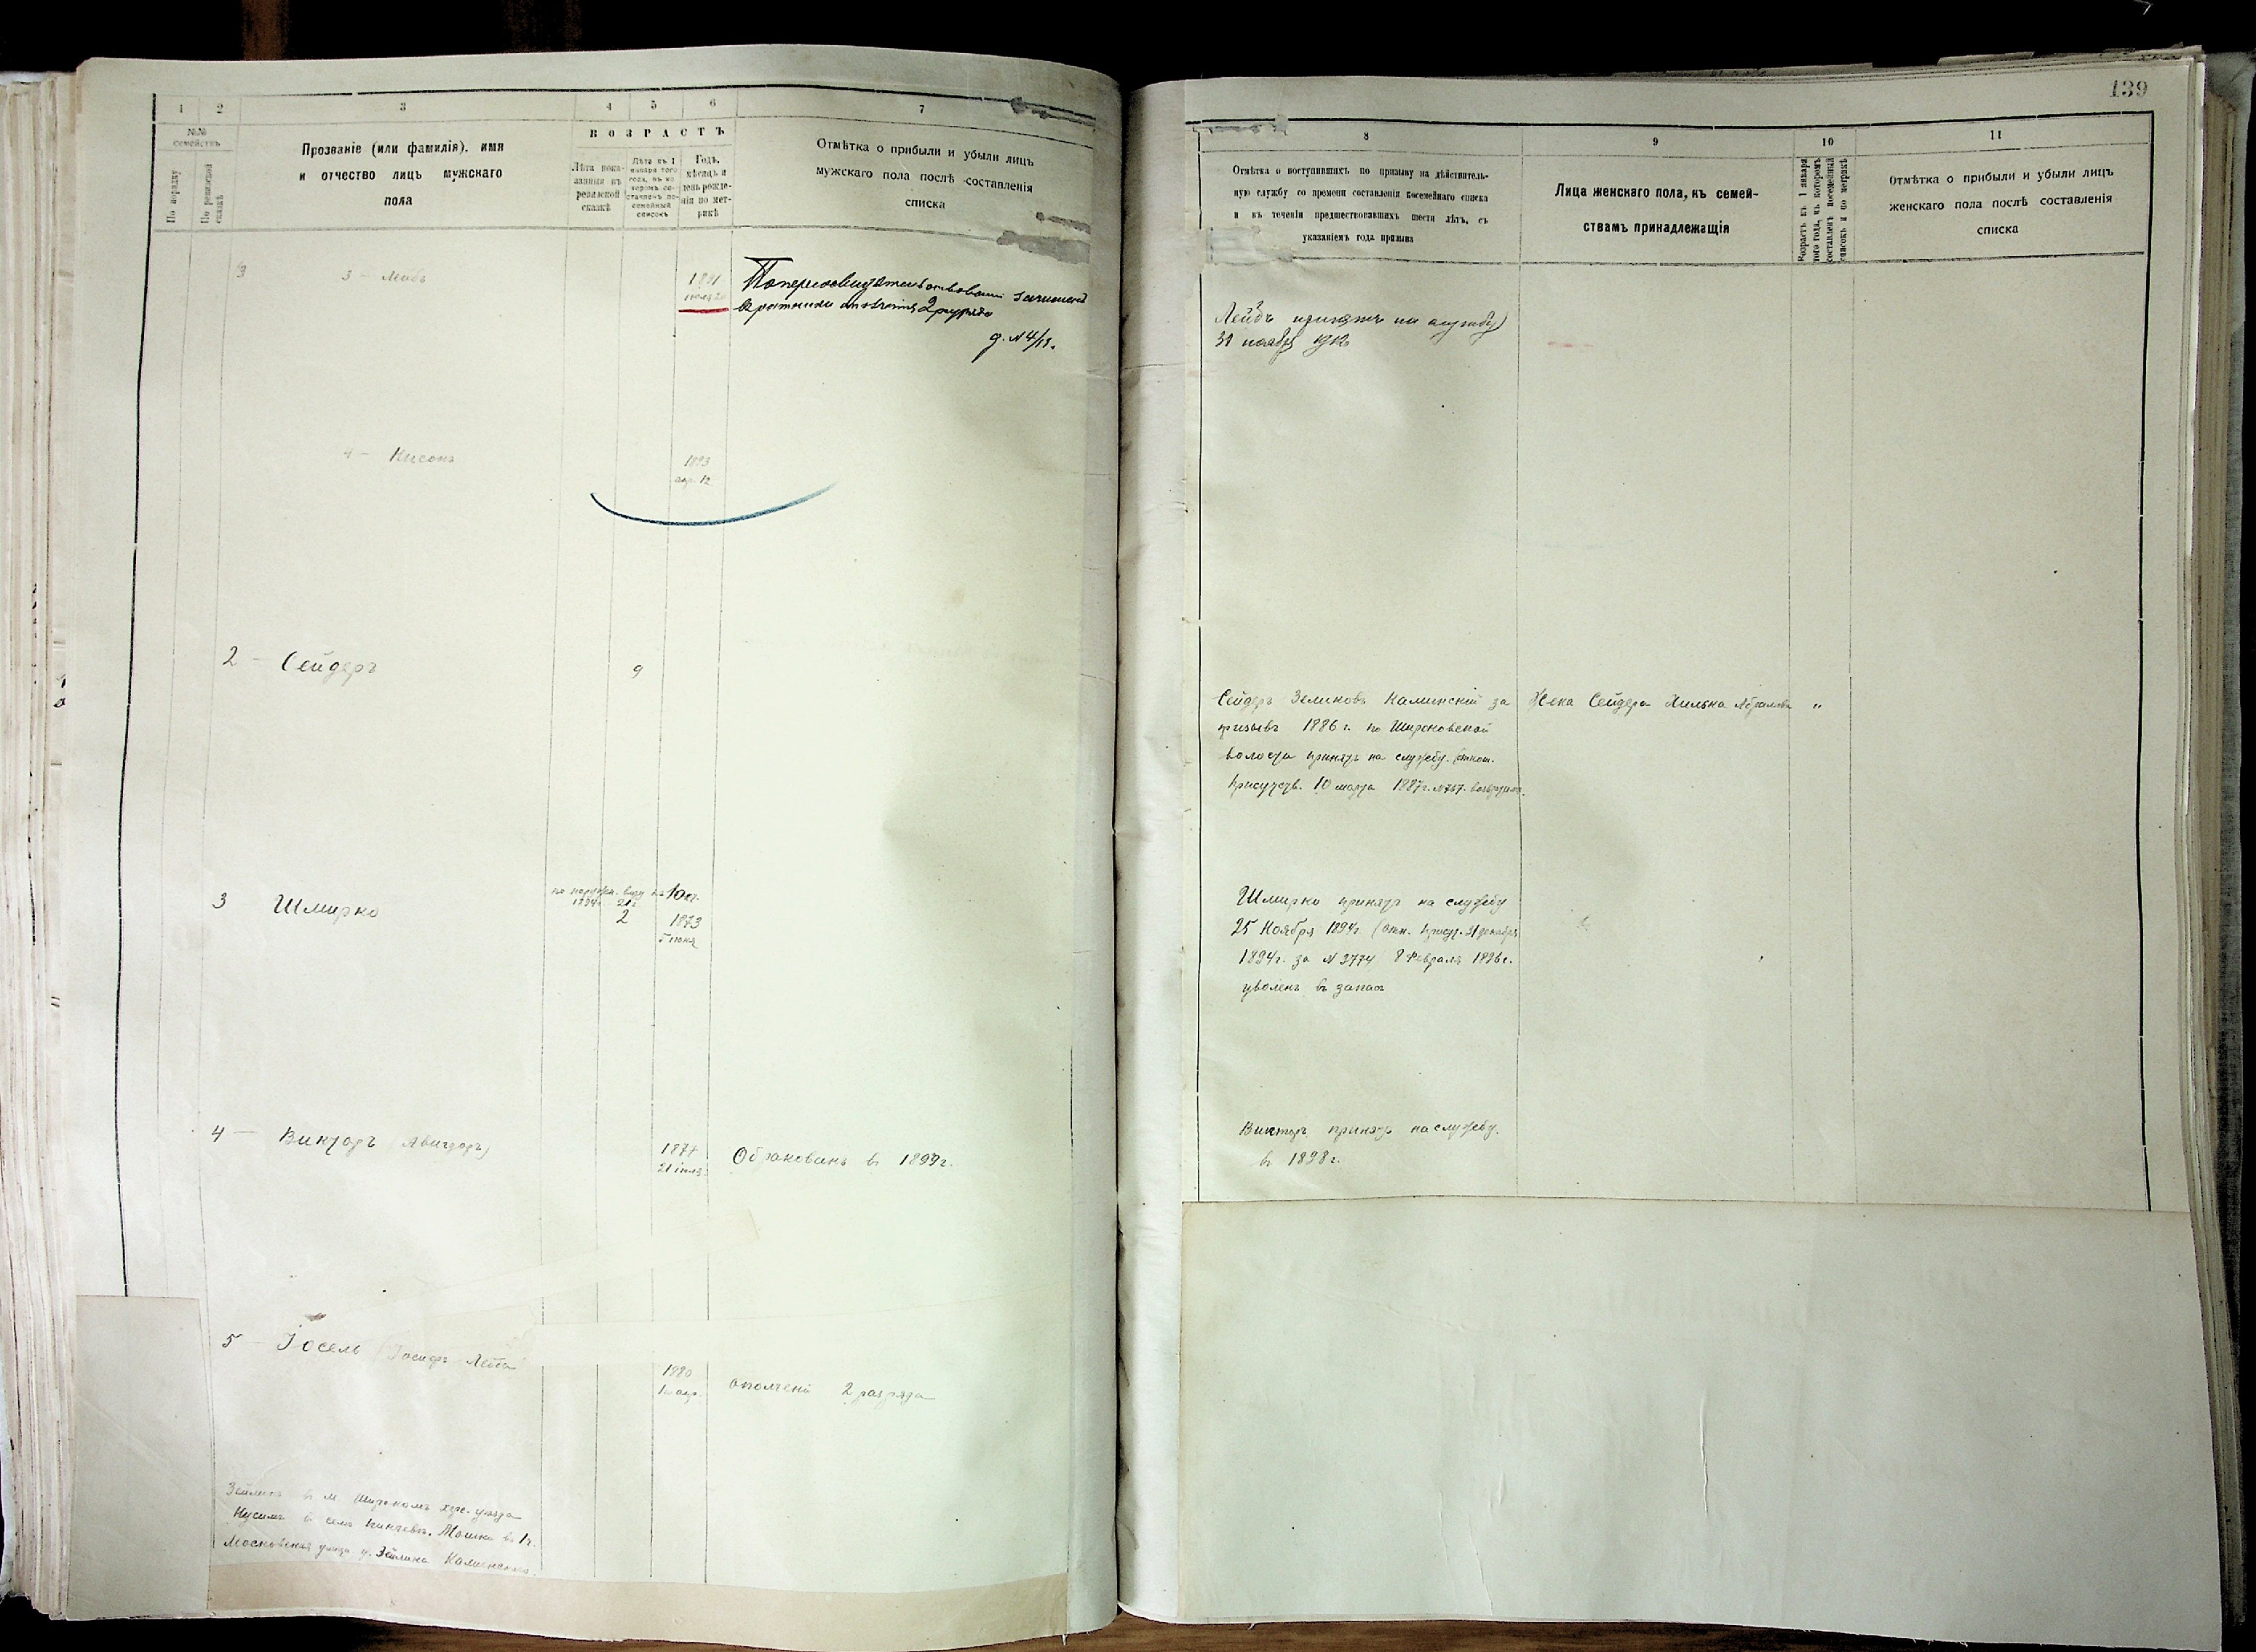 139
1 2 3 4 5 6 7
№№ семействъ
По порядку
По ревизской сказкѣ
Прозваніе (или фамилія), имя
и отчество лицъ мужскаго
пола
ВОЗРАСТЪ
Лѣта пока-
занныя въ
ревизской
сказкѣ
Лѣта къ 1
января того
года, въ ко-
торомъ со-
ставленъ по-
семейный
списокъ
Годъ,
мѣсяцъ и
день рожде-
нія по мет-
рикѣ
Отмѣтка о прибыли и убыли лицъ
мужскаго пола послѣ составленія
списка
3 3 - Лейбъ 1891
въ ратники ополченія 2 разряда
д. N 4/13.
4 - Нисонъ 1893
апр. 12
2 - Сейдеръ 9
3 Шмирко 2 1873
5 іюня
4 - Викторъ Авигдоръ) 1877
21 іюля
Обракованъ въ 1899 г.
5 - Іосель (Іосифъ Лейба 1880
ополченія 2 разряда
Зейликъ в м Широкомъ хер. уезда
Московская улица д. Зейлика Каминскаго.
8 9 10 11
Отмѣтка о поступившихъ по призыву на дѣйствитель-
ную службу со времени составленія посемейнаго списка
и въ теченіи предшествовавшихъ шести лѣтъ, съ
указаніемъ года призыва
Лица женскаго пола, къ семей-
ствамъ принадлежащія
Возрастъ къ 1 января
того года, въ которомъ
составленъ посемейный
списокъ и по метрикѣ
Отмѣтка о прибыли и убыли лицъ
женскаго пола послѣ составленія
списка
Лейбъ принятъ на службу
31 ноября 1912
Сейдеръ Зеликовъ Каминскій за
призывъ 1886 г. по Широковской
волости принятъ на службу.
присутств. 10 марта 1887 г. N 767.
Жена Сейдера Абрамова "
Шмирко принятъ на службу
25 Ноября 1894 г (отн. присут. 21 декабря
1894 г. за N 3774 8 Февраля 1896 г.
уволенъ въ запасъ
Викторъ принятъ на службу.
въ 1898 г.